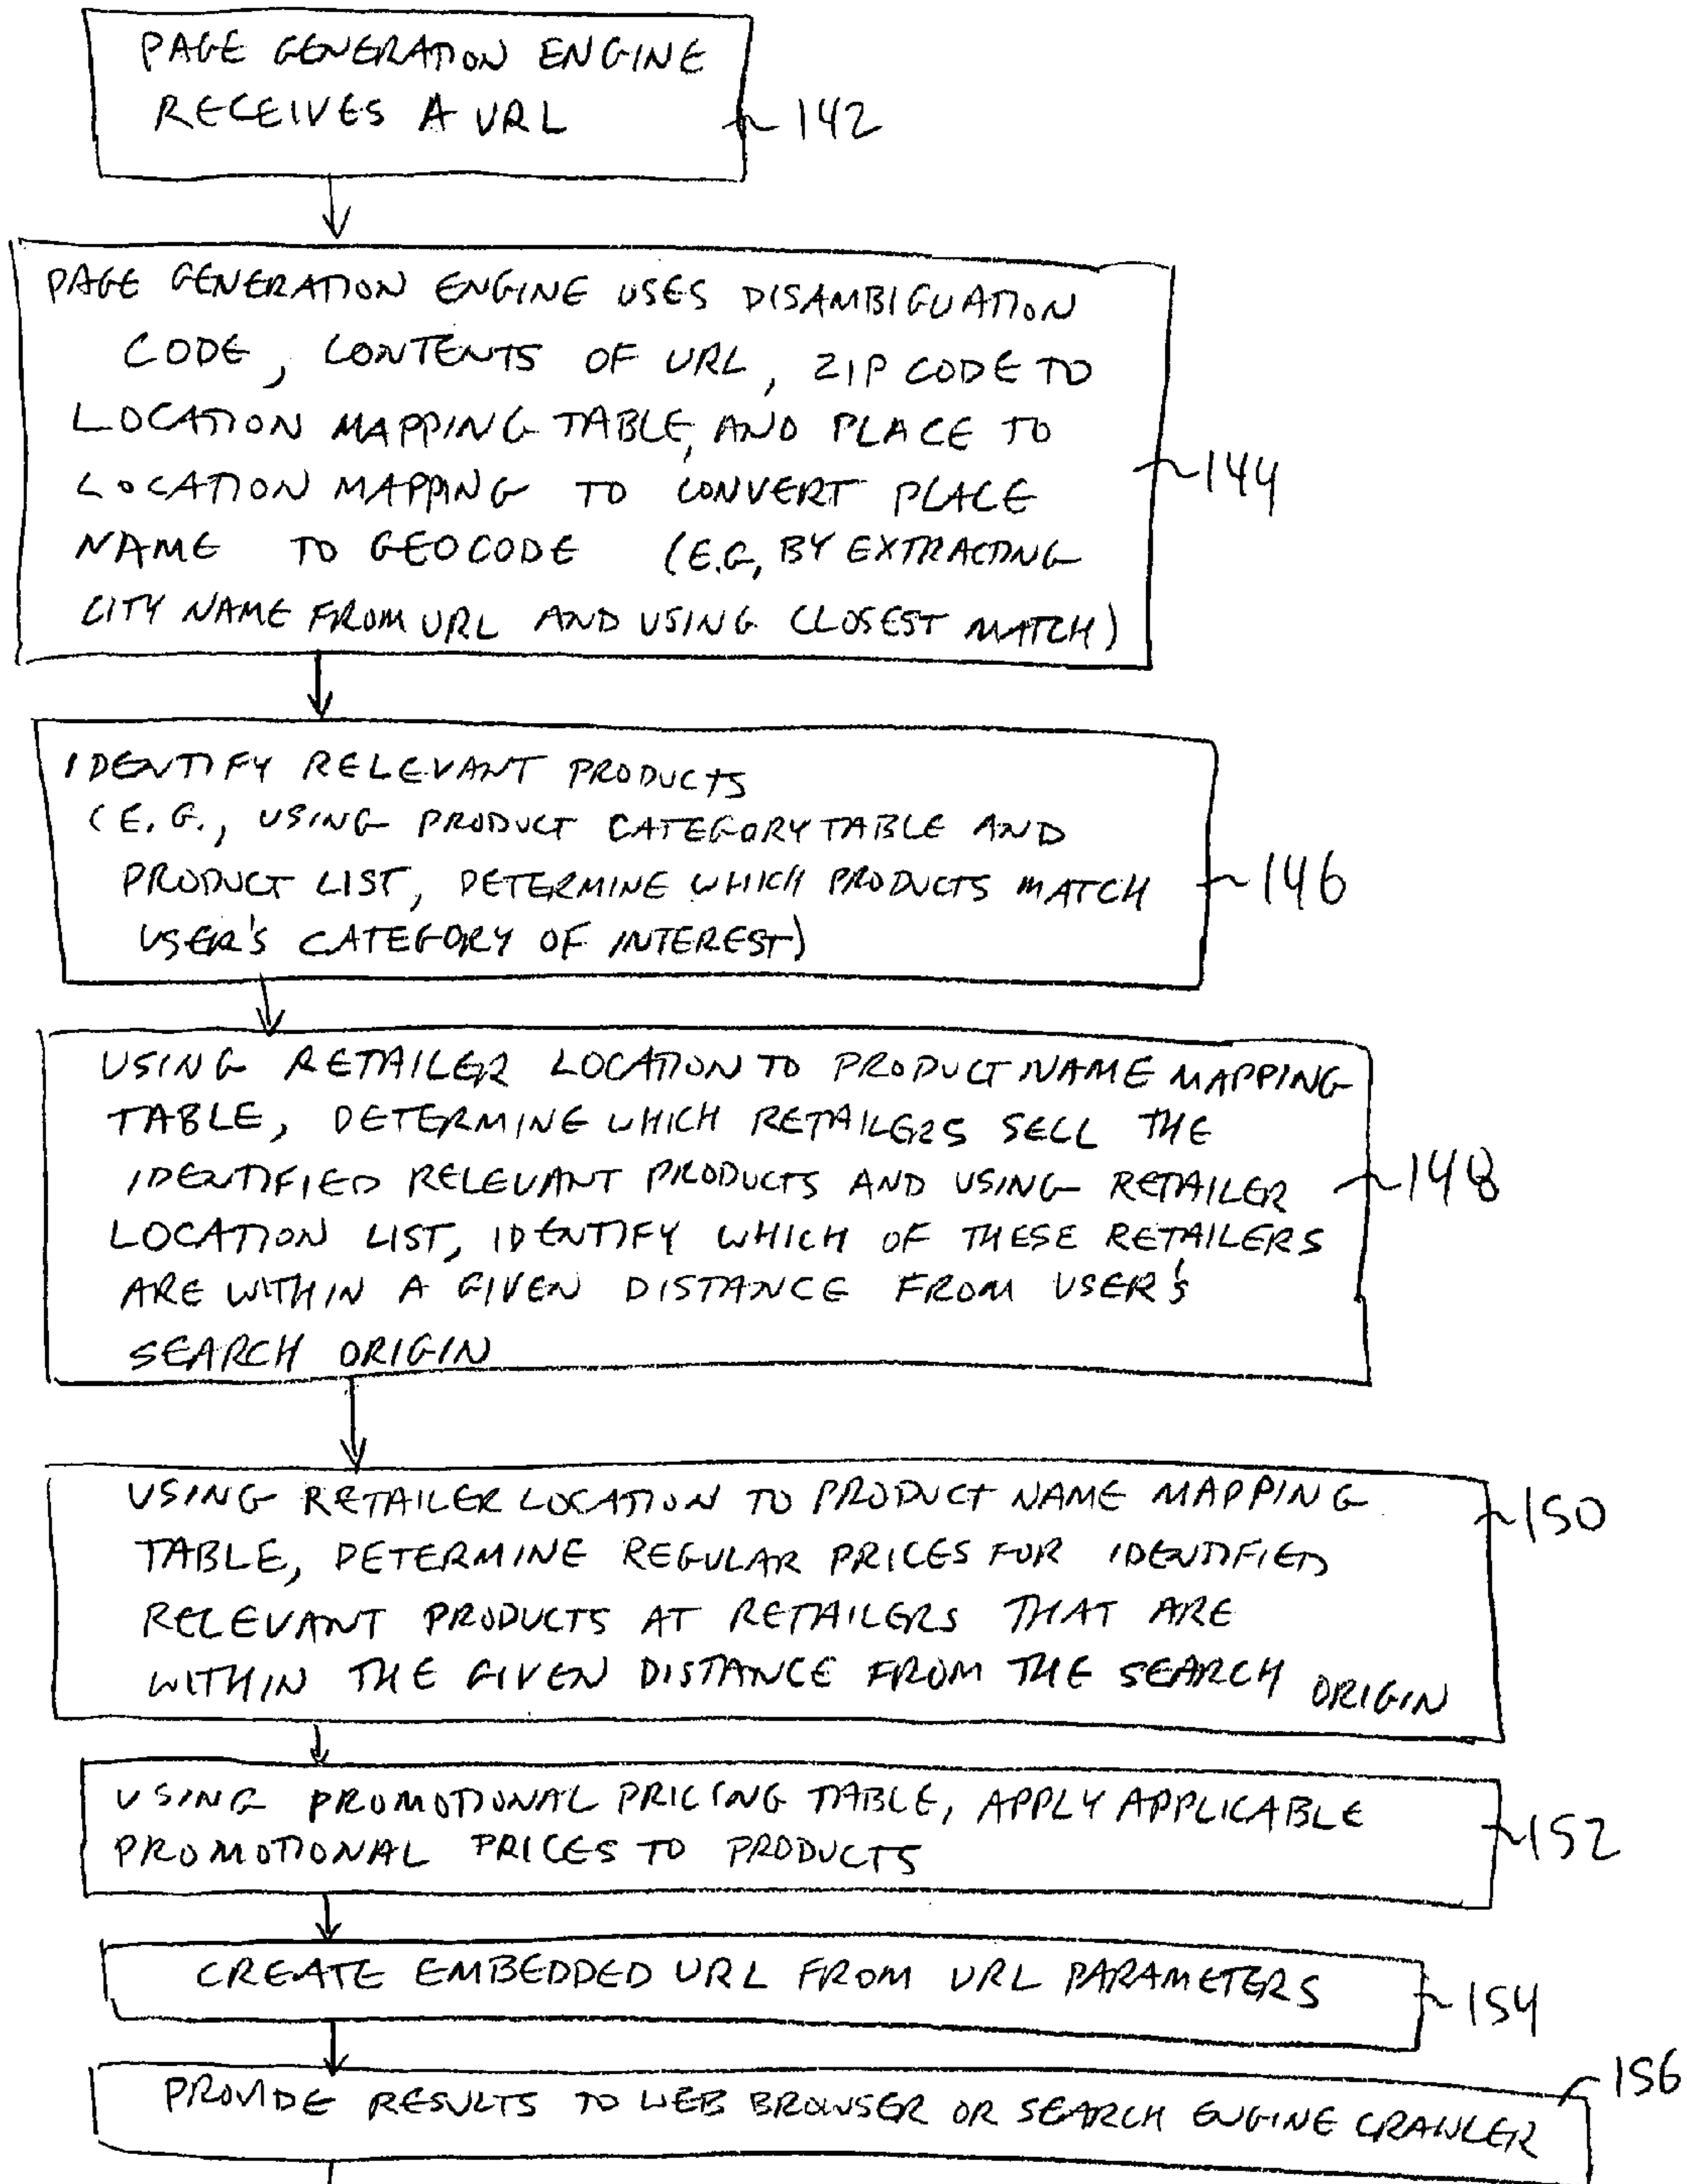 PAGE GENERATION ENGINE
RECEIVES A URL
142
PAGE GENERATION ENGINE USES DISAMBIGUATION
CODE, CONTENTS OF URL, ZIP CODE TO
LOCATION MAPPING TABLE, AND PLACE TO
LOCATION MAPPING TO CONVERT PLACE
144
NAME TO GEOCODE (E.G, BY EXTRACTING
CITY NAME FROM URL AND USING CLOSEST MATCH)
IDENTIFY RELEVANT PRODUCTS
(E.G., USING PRODUCT CATEGORY TABLE AND
PRODUCT LIST, DETERMINE WHICH PRODUCTS MATCH
146
USER'S CATEGORY OF INTEREST)
USING RETAILER LOCATION TO PRODUCT NAME MAPPING
TABLE, DETERMINE WHICH RETAILERS SELL THE
IDENTIFIED RELEVANT PRODUCTS AND USING RETAILER
148
LOCATION LIST, IDENTIFY WHICH OF THESE RETAILERS
ARE WITHIN A GIVEN DISTANCE FROM USER'S
SEARCH ORIGIN
USING RETAILER LOCATION TO PRODUCT NAME MAPPING
150
TABLE, DETERMINE REGULAR PRICES FOR IDENTIFIED
RELEVANT PRODUCTS AT RETAILERS THAT ARE
WITHIN THE GIVEN DISTANCE FROM THE SEARCH ORIGIN
USING PROMOTIONAL PRICING TABLE, APPLY APPLICABLE
PROMOTIONAL PRICES TO PRODUCTS
152
CREATE EMBEDDED URL FROM URL PARAMETERS
154
PROVIDE RESULTS TO WEB BROWSER OR SEARCH ENGINE CRAWLER
156